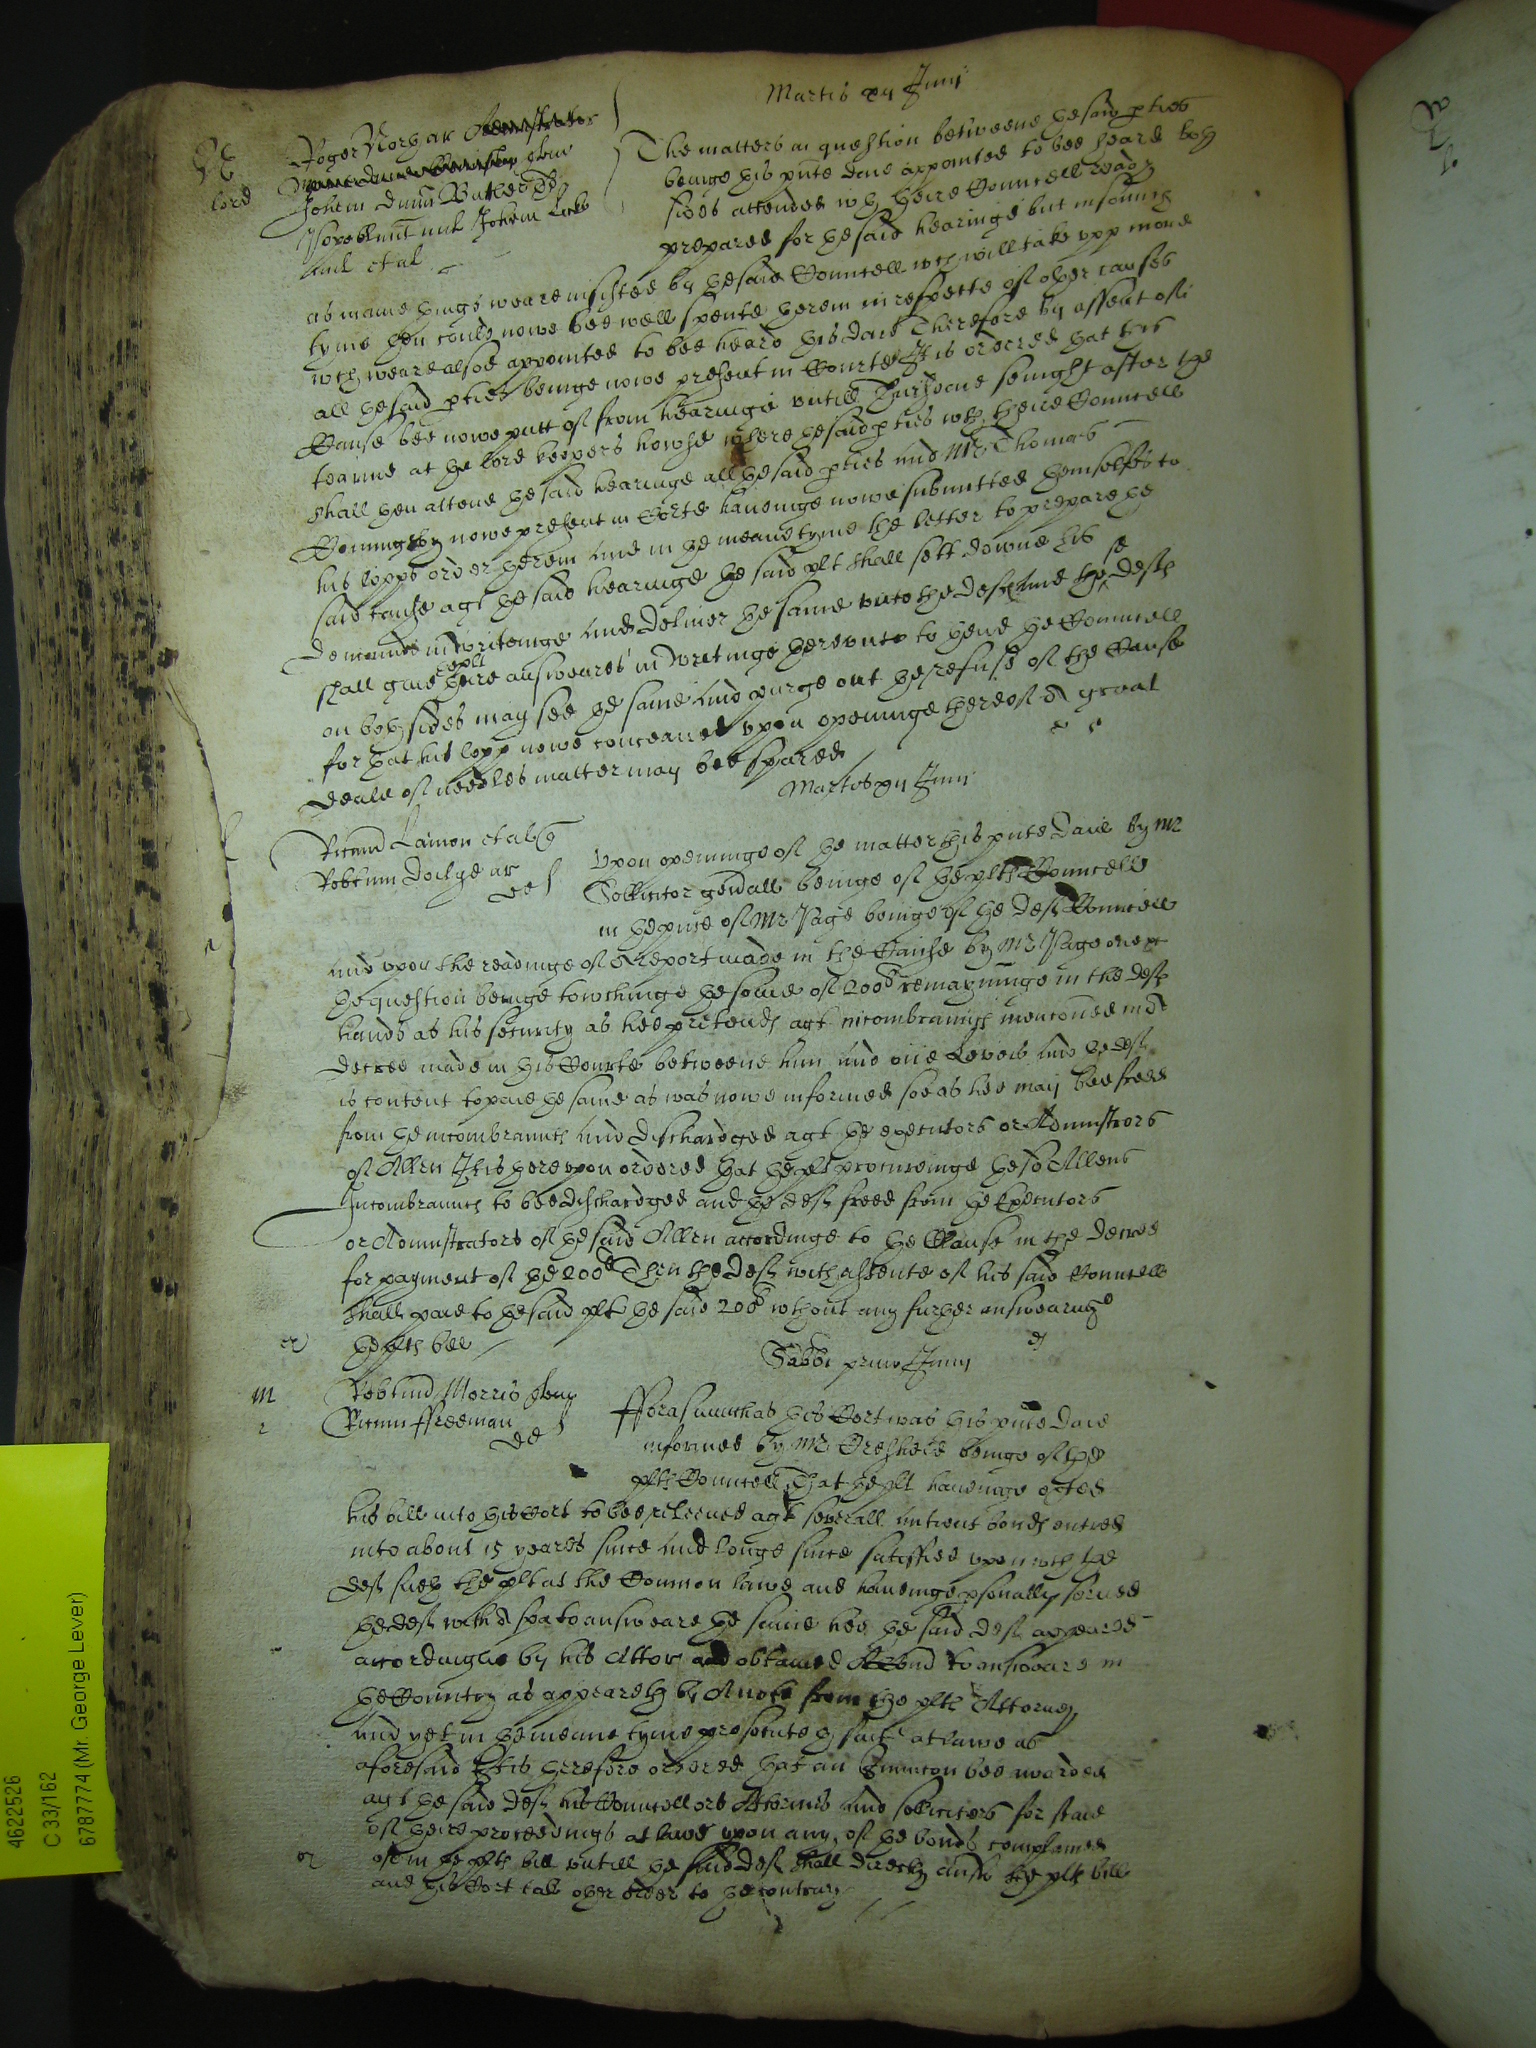 Martis xij Junij
lord
Roger Norgar
Johem dnum Butler def
ux et al
The matters in question betweene the said pties
beinge this pnte daie appointed to bee heard both
sides attended wth theire Councell ready
prepared for the said hearinge but insomuch
as manie things weare insisted by the said Councell wch will take upp more
tyme then could nowe bee well spente herein in respecte of other causes
wch weare alsoe appointed to bee heard this daie Therefore by assent of
all the said pties beinge nowe present in Courte It is ordered that this
Cause bee nowe putt of from hearinge untill Thursdaie senight after the
tearme at the lord keepers howse where the said pties wth theire Councell
shall then attend the said hearinge all the said pties and Mr Thomas
Conningsby nowe present in Corte havinge nowe submitted themselfes to
his lopps order herein And in the meane tyme the better to prepare the
said cause agt the said hearinge the said plt shall sett downe his
demaunds in writeinge and deliver the same unto the deft and the said defts
shall give theire answeares in writinge thereunto to thend the Councell
on both sides may see the same and purge out the refuse of the Cause
for that his lopp nowe conceaved upon openinge thereof a great
deale of needles matter may bee spared
Martis xij Junij
Ricus Lamon et al
Robtum Dolge ar
def
Upon openinge of the matter this pnte daie by Mr
Sollicitor genrall beinge of the plts Councell
in the pnce of Mr Page beinge of the defts Councell
and upon the readinge of a report made in the Cause by Mr Page
the question beinge towchinge the some of 200l remayninge in the defts
hands as his security as hee pretends agt incombrances mencioned in a
decree made in this Courte betweene him and one Lewis and the deft
is content to paie the same as was nowe informed soe as hee may bee freed
from the incombraunces and dischardged agt the executors or Administrors
of Allen It is hereupon ordered that the plt procureinge the sd Allens
Incombraunces to bee dischardged and the deft freed from the Executors
or Administrators of the said Allen accordinge to the Clause in the decree
for payment of the 200l Then the deft with assente of his said Councell
shall paie to the said plt the said 200l wthout any further answearinge
the plts bill
Sabbi primo Junij
Robtus Morris
Ricum ffreeman
def
fforasmuch as this Cort was this pnte daie
informed by Mr Tresheld beinge of the
plts Councell That the plt havinge exted
his bill into this Cort to bee releeved agt severall antient bonds entred
into about 15 yeares since and longe since satisfied upon wch the
deft sueth the plt at the Common lawe and havinge psonally served
the deft with a spa to answeare the same hee the said deft appeared
accordinglie by his Attor and obtained to answeare in
the Country as appeareth by A note from the plts Attorney
and yet in the meane tyme prosecuteth suite at lawe as
aforesaid It is therefore ordered that an Iniuncon bee awarded
agt the said deft his Councellors Attorneis and solliciters for staie
of theire proceedings at lawe upon any of the bonds complained
of in the plts bill untill the said deft shall directly answ the plts bill
and this Cort take other order to the contrary
4622526
C 33/162
6787774 (Mr. George Lever)